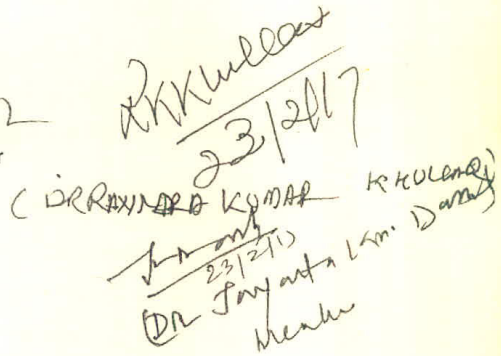 RKKhullar
23/2/17
( DR RAVINDRA KUMAR KHULLAR)
23/2/17
(Dr Jayanta Km. Das)
Member